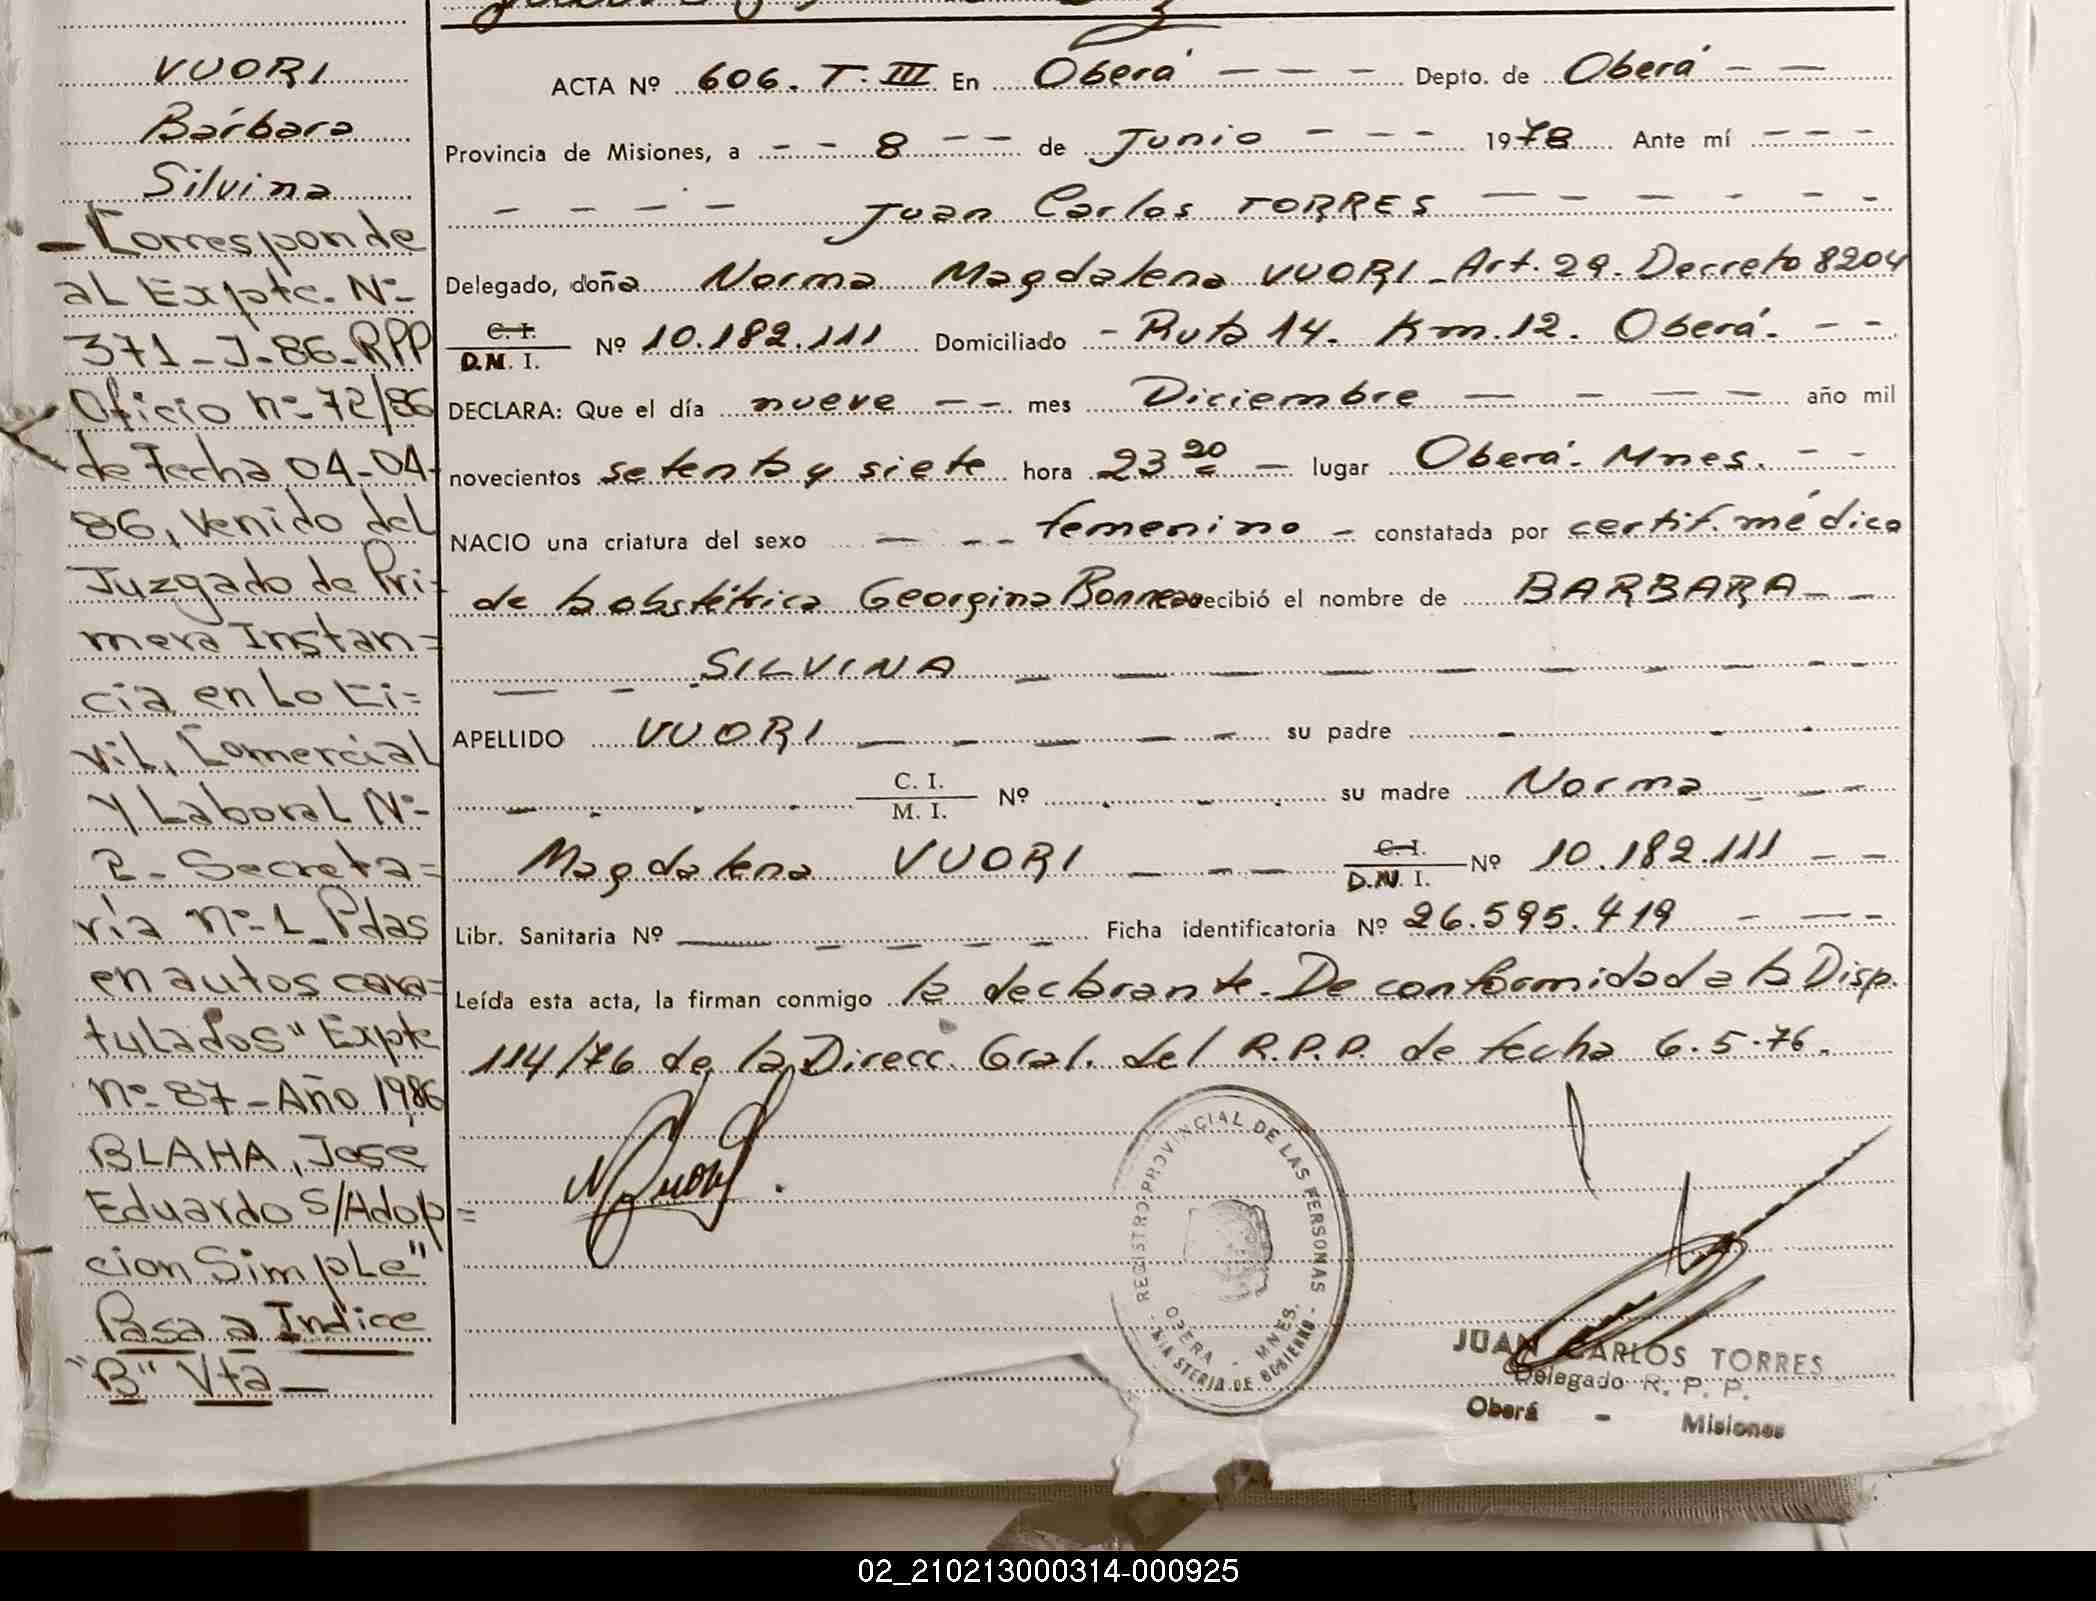 VUORI
Bárbara
Silvina
- Corresponde
al Expte. Nº
371-J-86-RPP
Oficio nº 72/86
de Fecha 04-04-
86, Venido del
Juzgado de Pri-
mera Instan=
cia en Lo Ci=
vil, Comercial
y Laboral Nº
2- Secreta=
ría nº 1 Pdas
en autos cara=
tulados "Expte
nº 87-Año 1986
BLAHA, José
Eduardo S/Adop=
cion Simple"
Pasa a Indice
"B" Vta-
ACTA Nº 606. T. III En Oberá - - - - Depto. de Oberá - -
Provincia de Misiones, a - - 8 - - de Junio - - - - 1978 Ante mí - - - -
- - - - Juan Carlos TORRES - - - - - - -
Delegado, doña Norma Magdalena VUORI - Art. 29. Decreto 8204
C. I.
D.M. I. Nº 10.182.111 Domiciliado - Ruta 14. Km. 12. Oberá. - -
DECLARA: Que el día nueve - - mes Diciembre - - - - año mil
novecientos setenta y siete hora 23 20 - lugar Oberá - Mnes. - -
NACIO una criatura del sexo - - - femenino - constatada por certif. médico
de la obstétrica Georgina recibió el nombre de BARBARA - -
- - SILVINA - - - - - - - - -
APELLIDO VUORI - - - - - su padre - - -
- - - - C. I.
M. I. Nº - - - su madre Norma - - -
Magdalena VUORI - - - C. I.
D.N. I. Nº 10.182.111 - -
Libr. Sanitaria Nº - - - - - Ficha identificatoria Nº 26.595.419 - - -
Leída esta acta, la firman conmigo la declarante. De conformidad a la Disp.
114/76 de la Direcc. Gral. del R.P.P. de fecha 6.5.76.
REGISTRO PROVINCIAL DE LAS PERSONAS
OBERA - MNES.
MINISTERIO DE GOBIERNO
JUAN CARLOS TORRES
Delegado R. P. P.
Oberá - Misiones
02_210213000314-000925